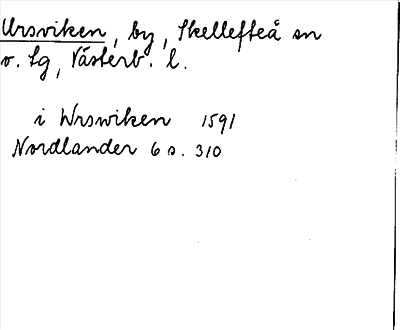 Ursviken, by, Skellefteå sn
v. Lg, Västerb. l.
i Wrswiken 1591
Nordlander 6 s. 310